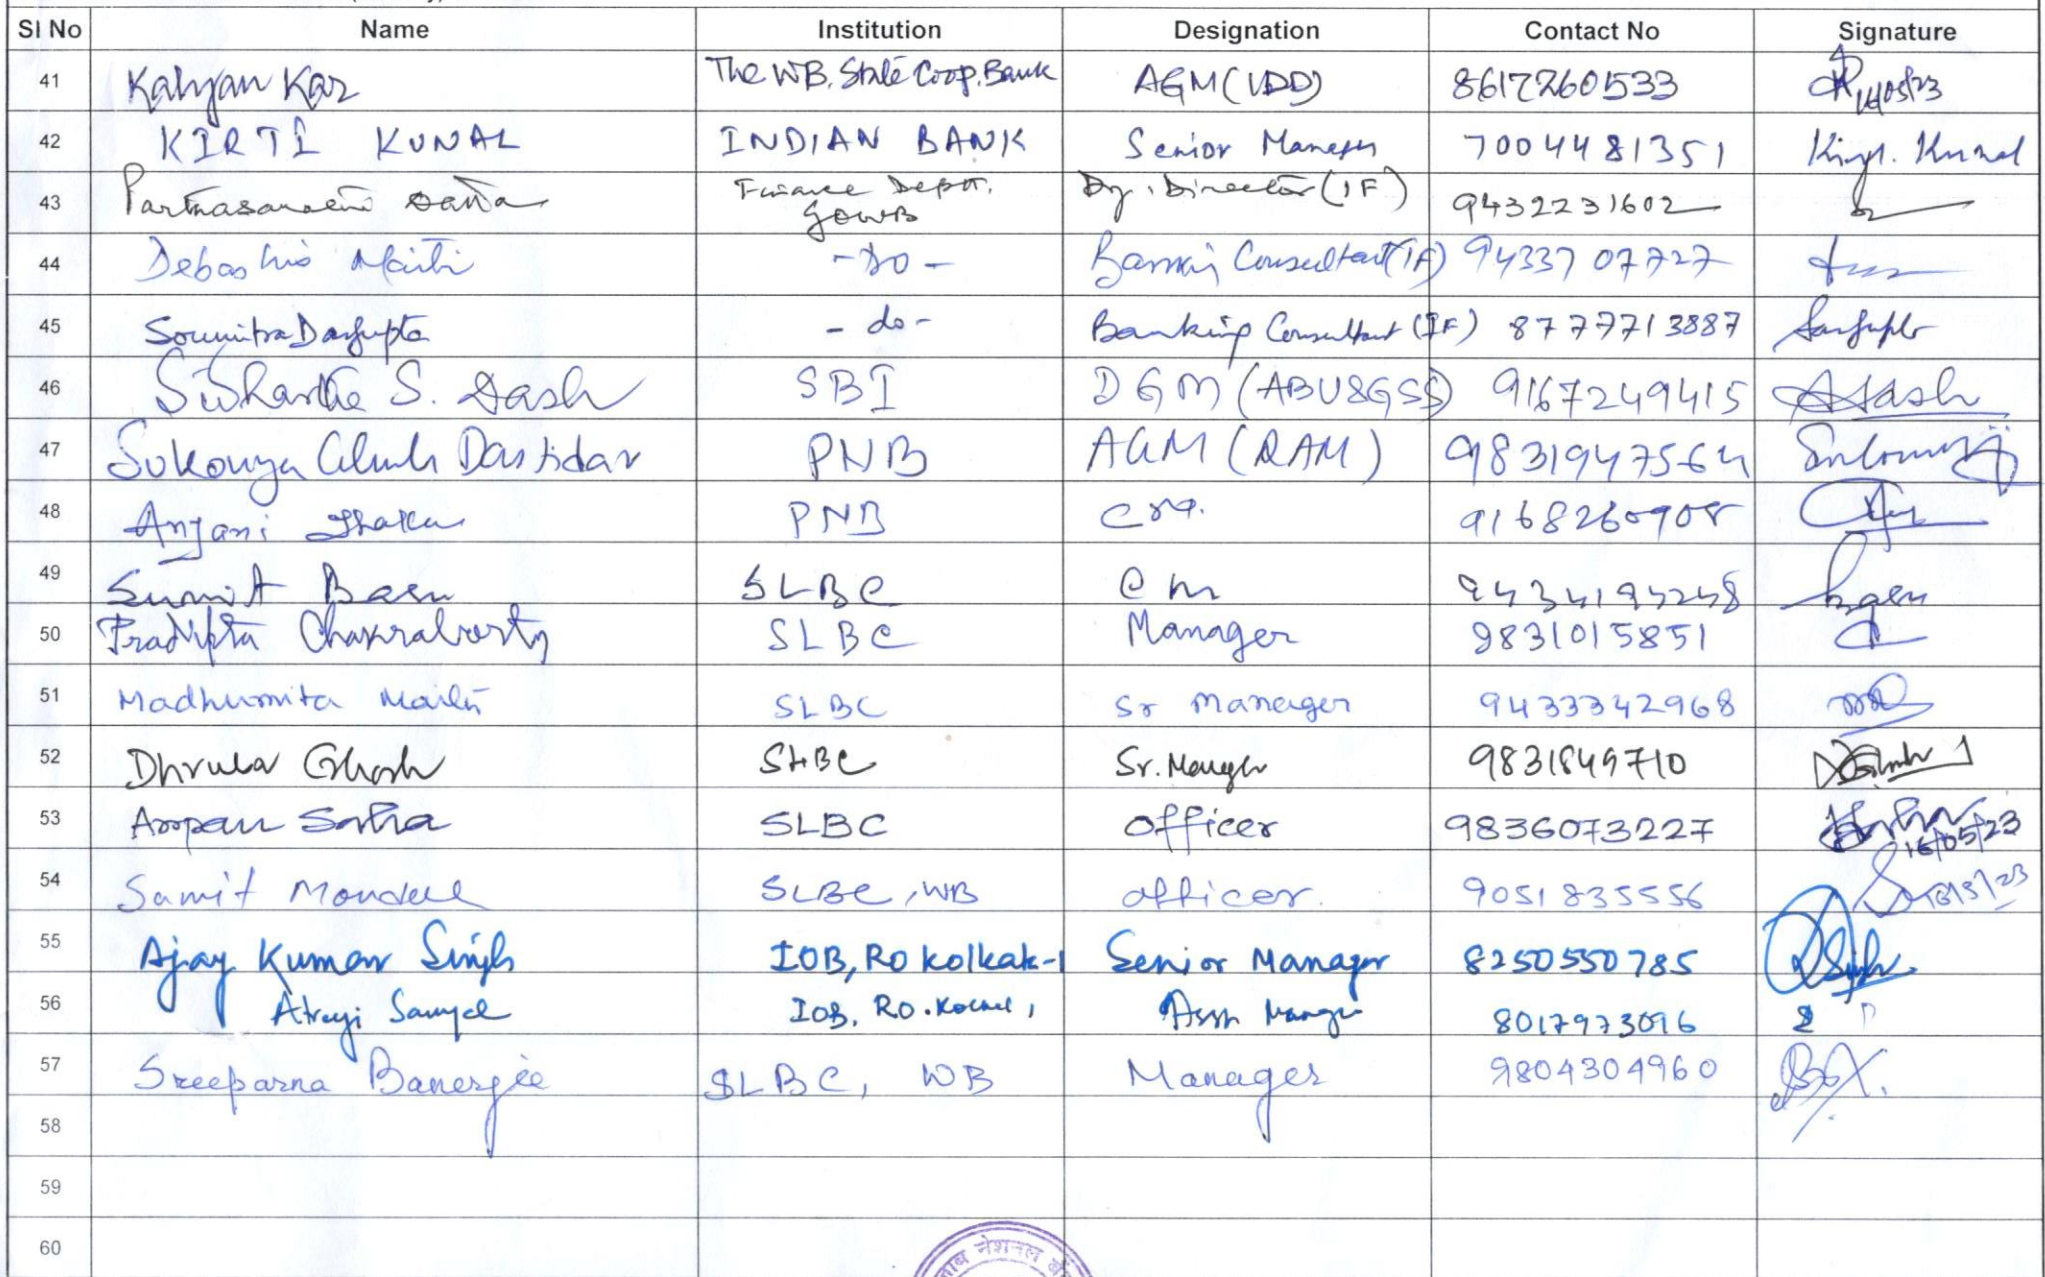 Sl No Name Institution Designation Contact No Signature
41 Kalyan Kar The WB. State Coop. Bank AGM (IDD) 8617260533
42 KIRTI KUNAL INDIAN BANK Senior Manager 7004481351 Kunal
43 Finance Deptt. Dy. Director (IF) 9432231602
GoWB
44 Debashis Maiti -Do- Consultant (IF) 9433707727
45 Soumitra Dasgupta - do - Banking Consultant (IF) 8777713887
46 S. Dash SBI DGM (ABU&GSS) 9167249415
47 Sukanya Ghosh Dastidar PNB AGM (RAM) 9831947564
48 Anjani PNB
49 Sumit Basu SLBC CM Basu
50 Pradipta Chakraborty SLBC Manager 9831015851
51 Madhumita Maiti SLBC Sr Manager 9433342968
52 Dhruba Ghosh SLBC Sr. Manager 9831849710
53 Arpan Satra SLBC Officer 9836073227
16/05/23
54 Samit Mondal SLBC, WB officer. 9051835556
55 Ajay Kumar Singh IOB, RO Kolkata-1 Senior Manager 8250550785
56 Atreyi Sanyal IOB, RO. Asst Manager 8017973096
57 Sreeparna Banerjee SLBC, WB Manager 9804304960
58
59
60
नेशनल